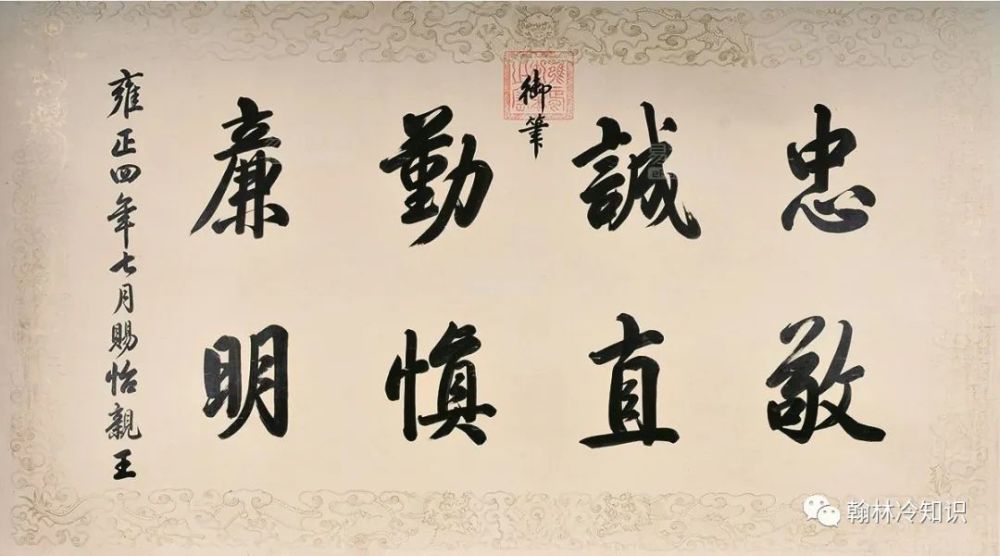 忠敬
誠直
御筆
勤慎
廉明
雍正四年七月賜怡親王
翰林冷知识